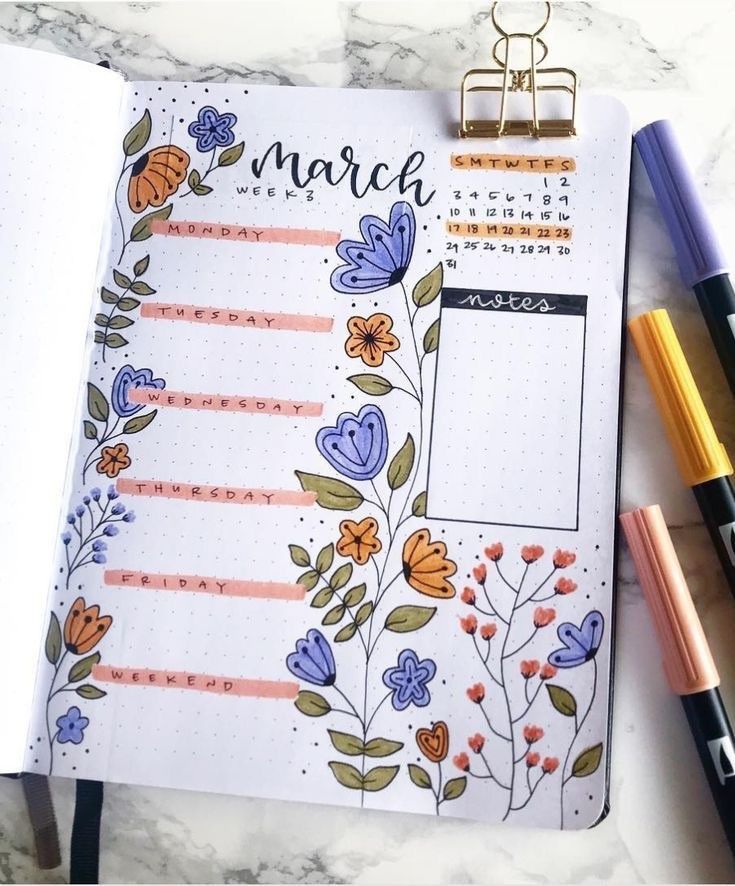 march
WEEK 3
MONDAY
TUESDAY
WEDNESDAY
THURSDAY
FRIDAY
WEEKEND
S M T W T F S
1 2
3 4 5 6 7 8 9
10 11 12 13 14 15 16
17 18 19 20 21 22 23
24 25 26 27 28 29 30
31
notes